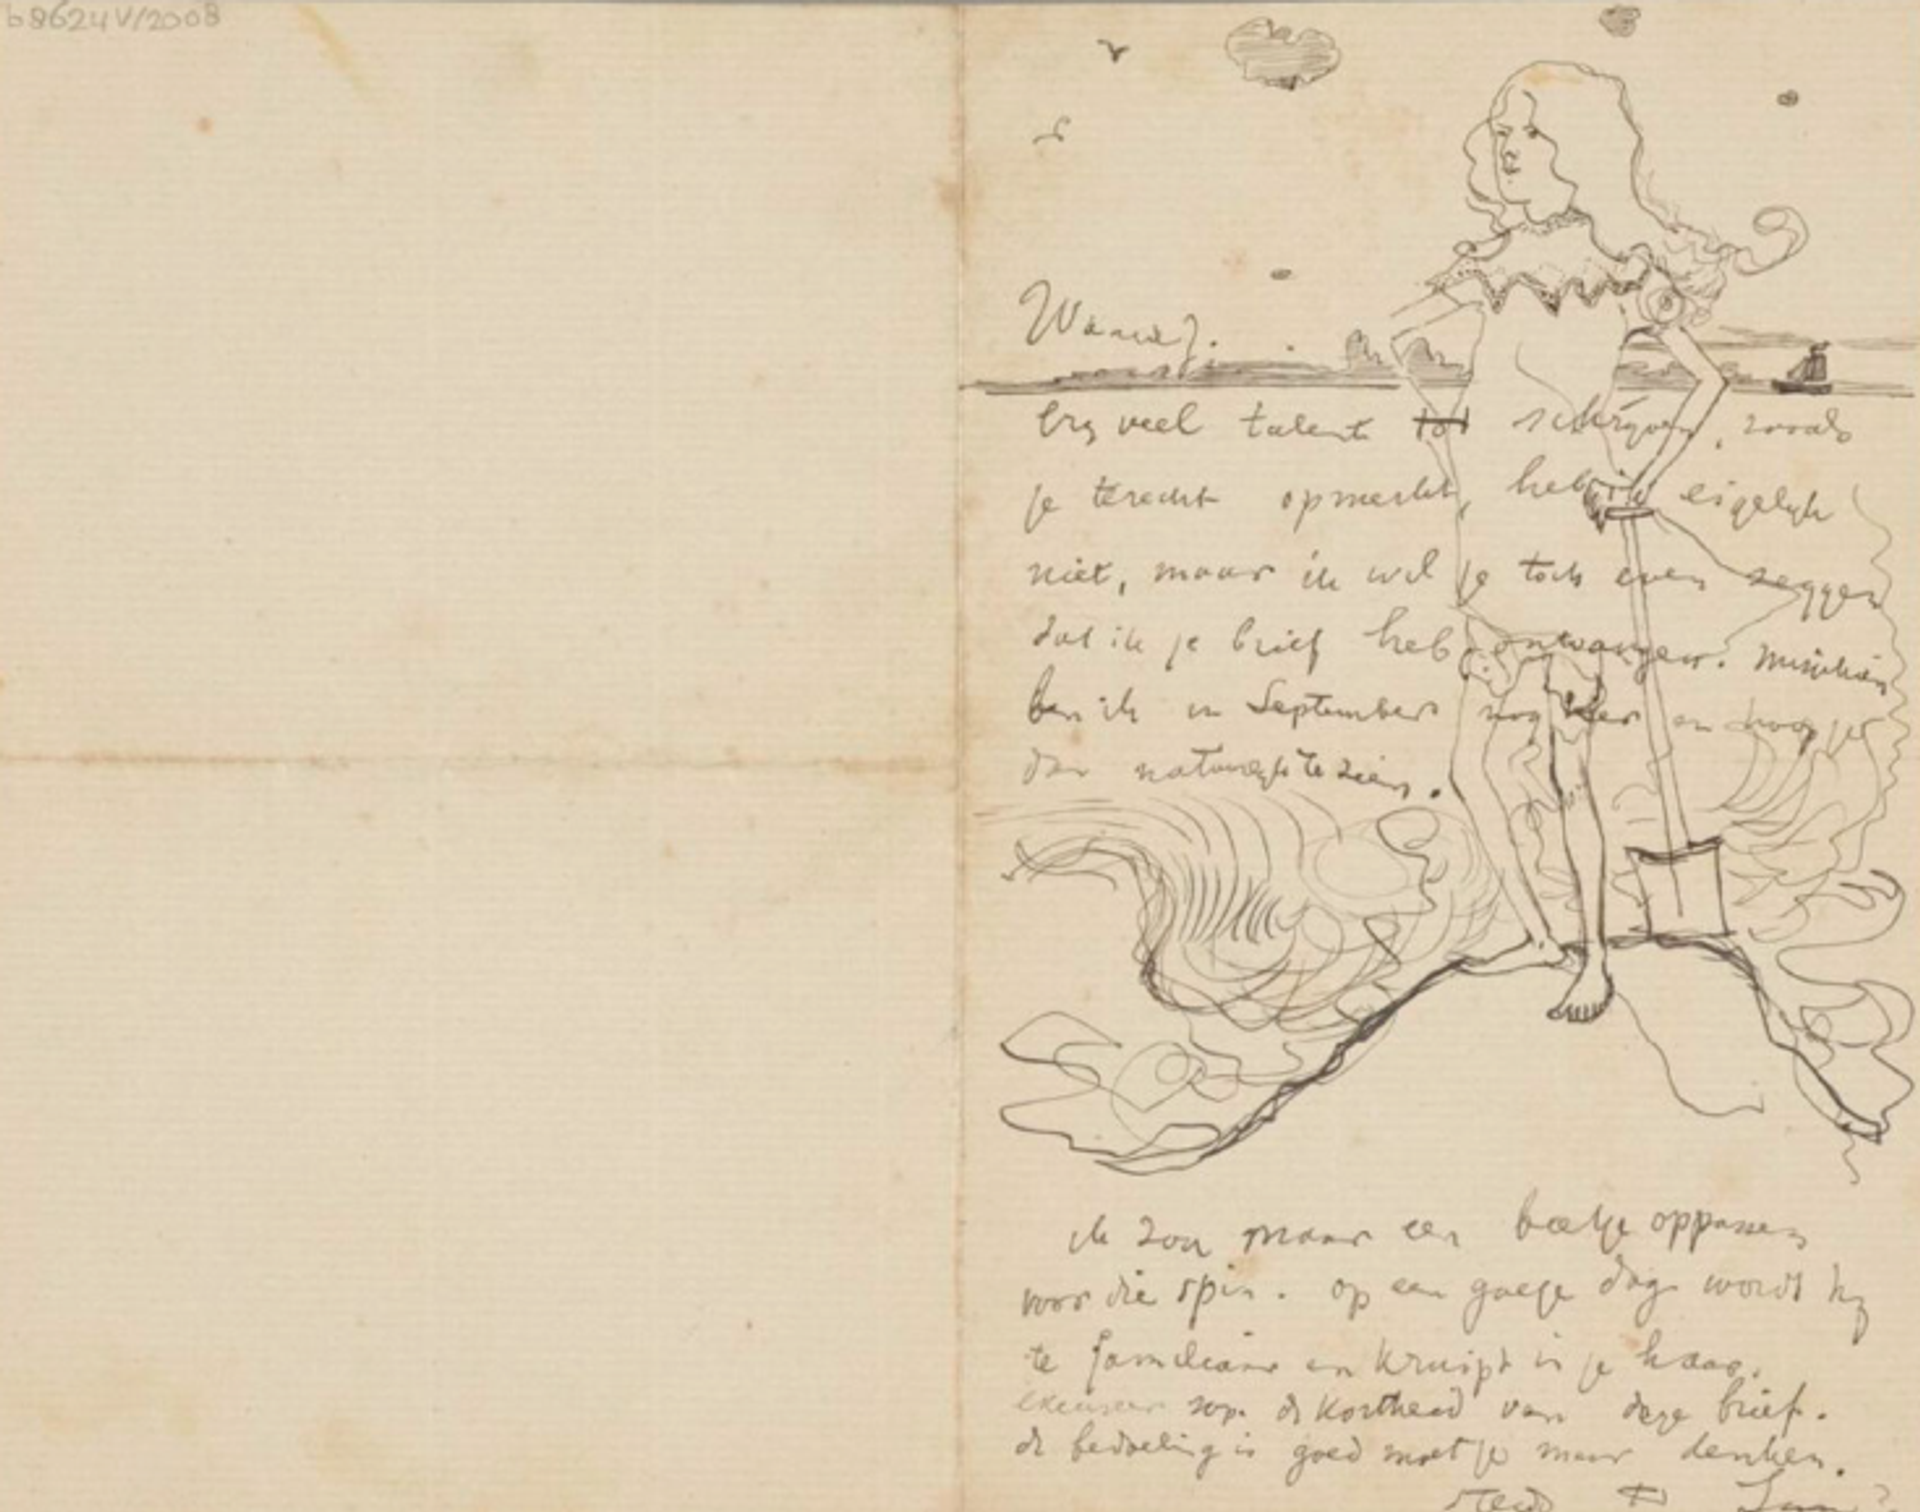 b8624V/2008
Wanda?.
Erg veel talent tot schrijven, zooals
je terecht opmerkt, heb ik eigelijk
niet, maar ik wil je toch even zeggen
dat ik je brief heb ontvangen. Misschien
ben ik in September nog hier en hoop je
dan natuurlijk te zien.
ik zou maar een beetje oppassen
voor die spin. op een goeje dag wordt hij
te familiaar en kruipt in je haar.
excuseer svp. de kortheid van deze brief.
de bedoeling is goed moet je maar denken.
steeds